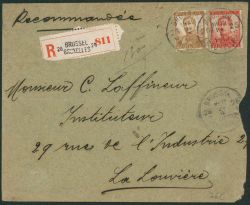 Recommandée
R
BRUSSEL
BRUXELLES
811
Monsieur C. Laffineur
Instituteur
29 rue de l'Industrie
La Louvière